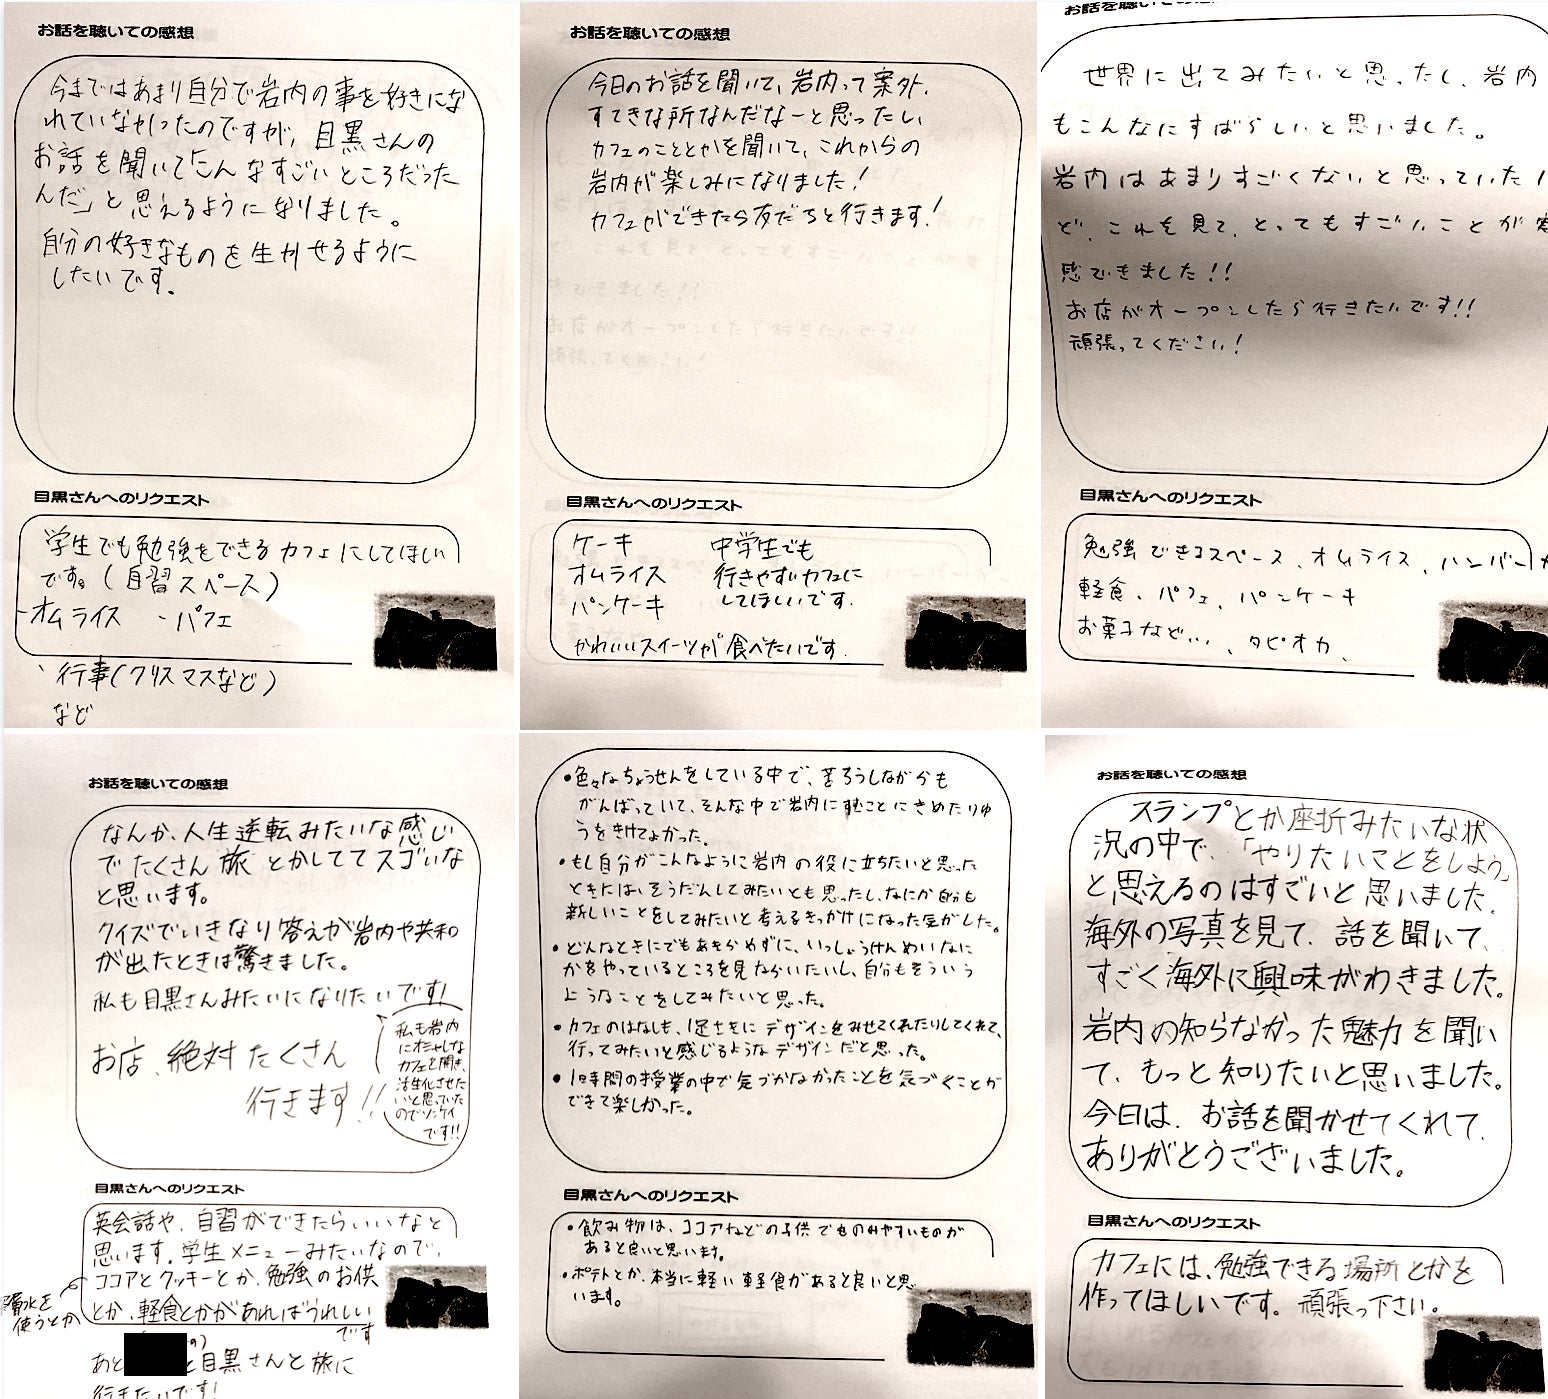 お話を聴いての感想
今まではあまり自分で岩内の事を好きにな
れていなかったのですが、目黒さんの
お話を聞いて「こんなすごいところだった
んだ」と思えるようになりました。
自分の好きなものを生かせるように
したいです。
目黒さんへのリクエスト
学生でも勉強をできるカフェにしてほしい
です。(自習スペース)
・オムライス ・パフェ
、行事(クリスマスなど)
など
お話を聴いての感想
今日のお話を聞いて、岩内って案外、
すてきな所なんだなーと思ったし
カフェのこととかを聞いて、これからの
岩内が楽しみになりました!
カフェができたら友だちと行きます!
目黒さんへのリクエスト
ケーキ
オムライス
パンケーキ
中学生でも
行きやすいカフェに
してほしいです.
かわいいスイーツが食べたいです.
お話を聴いての感想
世界に出てみたいと思ったし、岩内
もこんなにすばらしいと思いました。
岩内はあまりすごくないと思っていた
ど、これを見て、とってもすごいことが実
感できました!!
お店がオープンしたら行きたいです!!
頑張ってください!
目黒さんへのリクエスト
勉強できるスペース、オムライス、ハンバーガ
軽食、パフェ、パンケーキ
お菓子など...、タピオカ、
お話を聴いての感想
なんか、人生逆転みたいな感じ
でたくさん旅とかしててスゴいな
と思います。
クイズでいきなり答えが岩内や共和
が出たときは驚きました。
私も目黒さんみたいになりたいです!
お店、絶対たくさん
行きます!!
私も岩内
にオシャレな
カフェを開き、
活性化させた
いと思っていた
のでソンケイ
です!!
目黒さんへのリクエスト
英会話や、自習ができたらいいなと
思います。学生メニューみたいなので、
ココアとクッキーとか、勉強のお供
とか、軽食とかがあればうれしい
です
水を
使うとか
あと と目黒さんと旅に
行きたいです!
・色々なちょうせんをしている中で、苦ろうしながらも
がんばっていて、そんな中で岩内にすむことにきめたりゆ
うをきけてよかった。
・もし自分がこんなように岩内の役に立ちたいと思った
ときには、そうだんしてみたいとも思ったし、なにか自分も
新しいことをしてみたいと考えるきっかけになった気がした。
・どんなときにでもあきらめずに、いっしょうけんめいなに
かをやっているところを見ならいたいし、自分もそういう
ようなことをしてみたいと思った。
・カフェのはなしも、1足さきにデザインをみせてくれたりしてくれて、
行ってみたいと感じるようなデザインだと思った。
・1時間の授業の中で気づかなかったことを気づくことが
できて楽しかった。
目黒さんへのリクエスト
・飲み物は、ココアなどの子供でものみやすいものが
あると良いと思います。
・ポテトとか、本当に軽い軽食があると良いと思
います。
お話を聴いての感想
スランプとか座折みたいな状
況の中で、「やりたいことをしよう」
と思えるのはすごいと思いました.
海外の写真を見て、話を聞いて、
すごく海外に興味がわきました。
岩内の知らなかった魅力を聞い
て、もっと知りたいと思いました。
今日は、お話を聞かせてくれて、
ありがとうございました。
目黒さんへのリクエスト
カフェには、勉強できる場所とかを
作ってほしいです。頑張っ下さい。